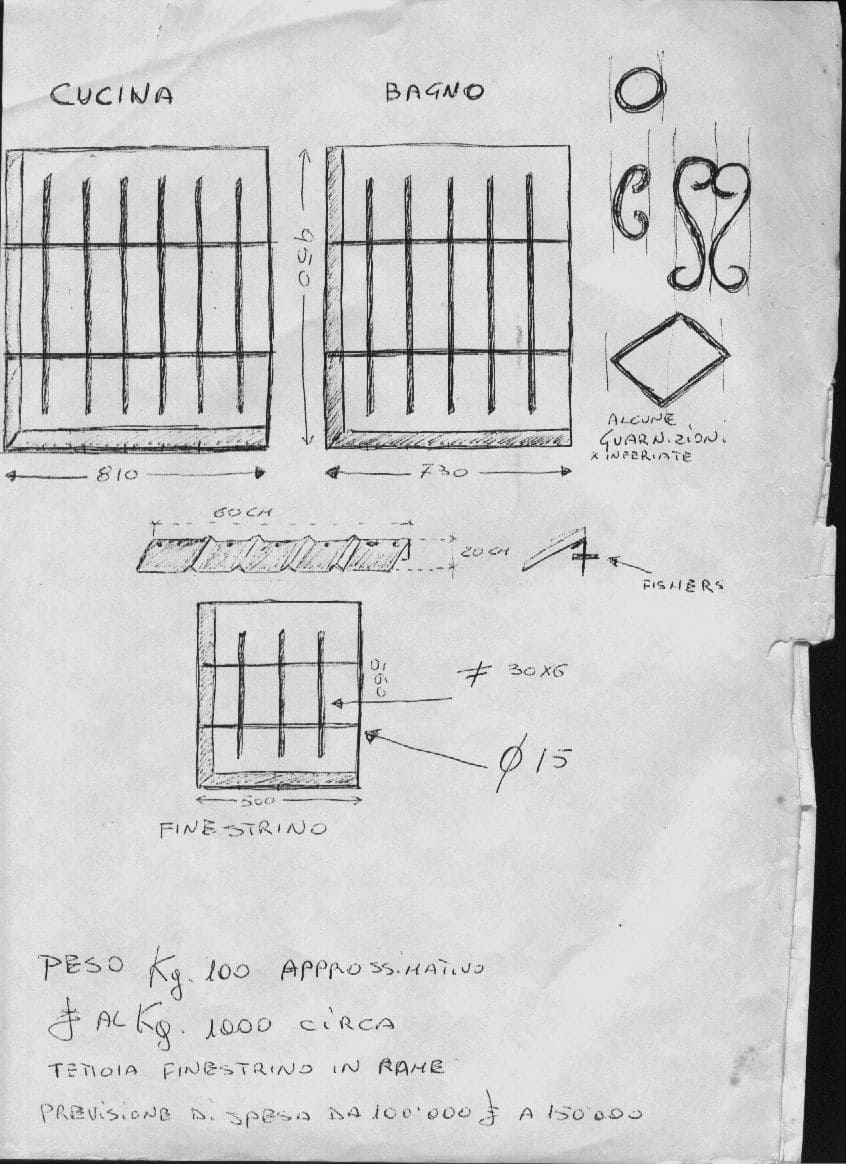 CUCINA
BAGNO
950
ALCUNE
GUARNIZIONI
x INFERIATE
810
730
60 CM
20 CM
FISHERS
560
≠ 30X6
Ø 15
500
FINESTRINO
PESO Kg. 100 APPROSSIMATIVO
£ AL Kg. 1000 CIRCA
TETTOIA FINESTRINO IN RAME
PREVISIONE DI SPESA DA 100'000 £ A 150'000